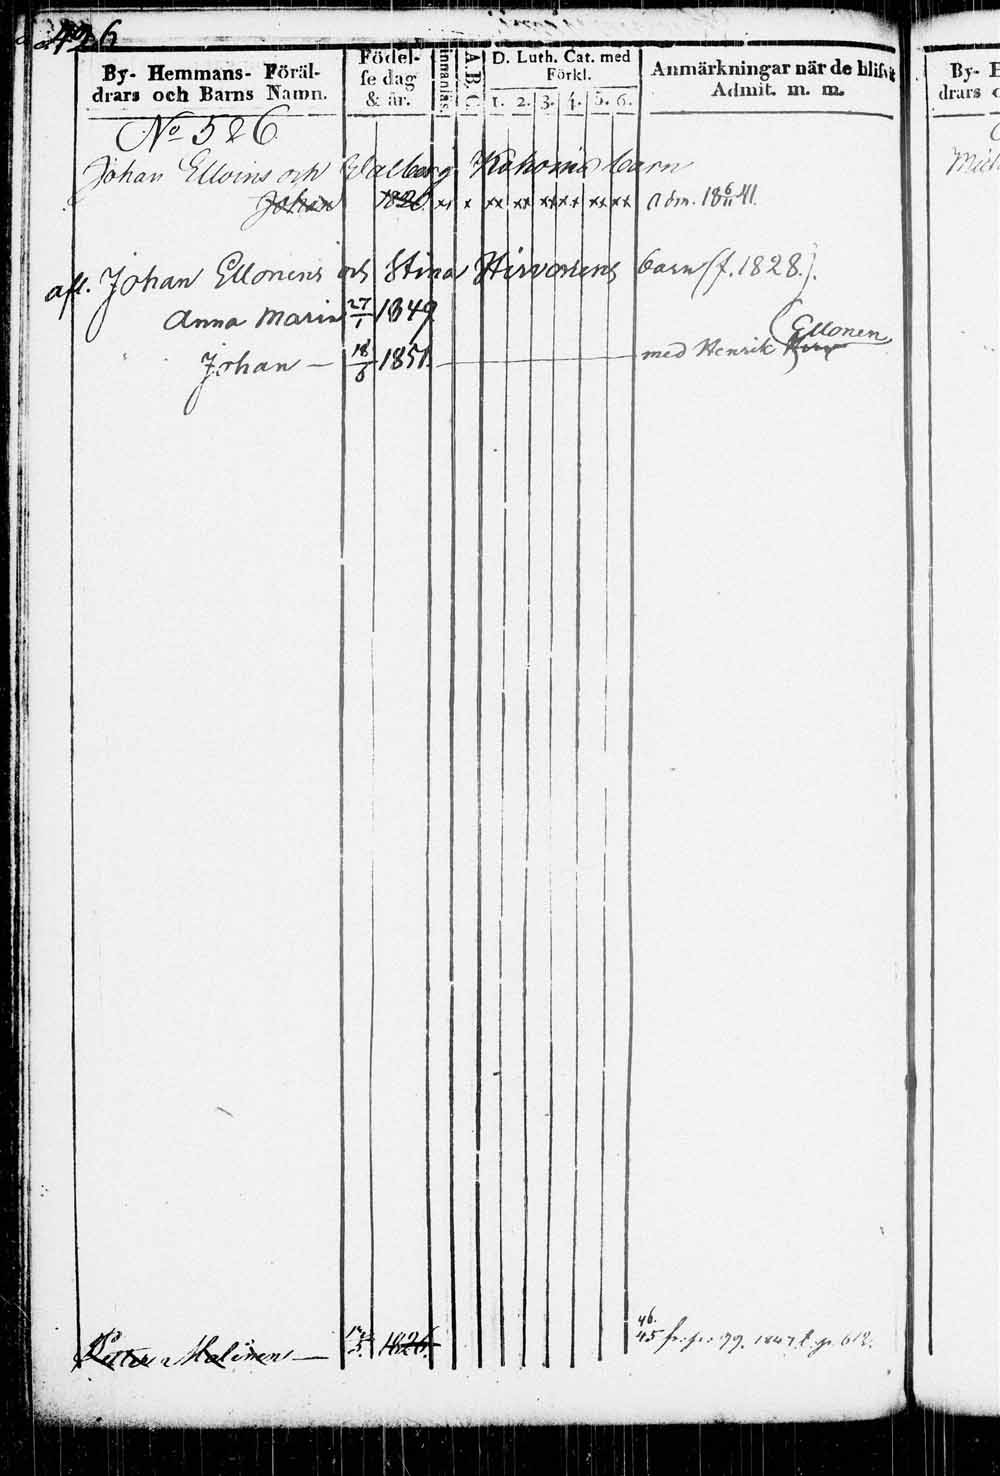 426
By- Hemmans- Föräl-
drars och Barns Namn.
Födel-
se dag
& år.
Innanläs.
A.B.C.
D. Luth. Cat. med
Förkl.
1. 2. 3. 4. 5. 6.
Anmärkningar när de blifvit
Admit. m. m.
By-
drars
No 526
Johan Elloins och Walborg Kokoins barn
Johan 1820. xx x xx xx xx xx xx xx Adm. 18 6/11 41.
afl. Johan Ellonens och Stina Hirvonens barn (f. 1828.).
Anna Maria 27/1 1849.
Johan — 18/5 1851. med Henrik Ellonen
Petter Malinen — 1826.
46.
45 fr. p. 99. 1847 t. p. 612.